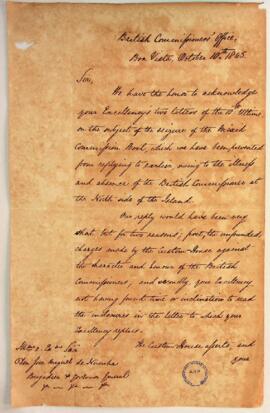 British Commissioners' Office,
Boa Vista, October 10th 1845.
Sir,
We have the honor to acknowledge
your Excellency's two letters of the 10th Ultimo
on the subject of the seizure of the British
Commission Boat, which we have been prevented
from replying to earlier owing to the illness
and absence of the British Commissioner at
the North side of the Island.
Our reply would have been very
short, but for two reasons; first, the unfounded
charges made by the Custom-House against
the character and honour of the British
Commissioners; and secondly, your Excellency
not having found time or inclination to read
the inclosures in the letter to which your
Excellency replies.
The Custom-House asserts, and
your
Dom José Miguel de Noronha
Brigadier & Governor General